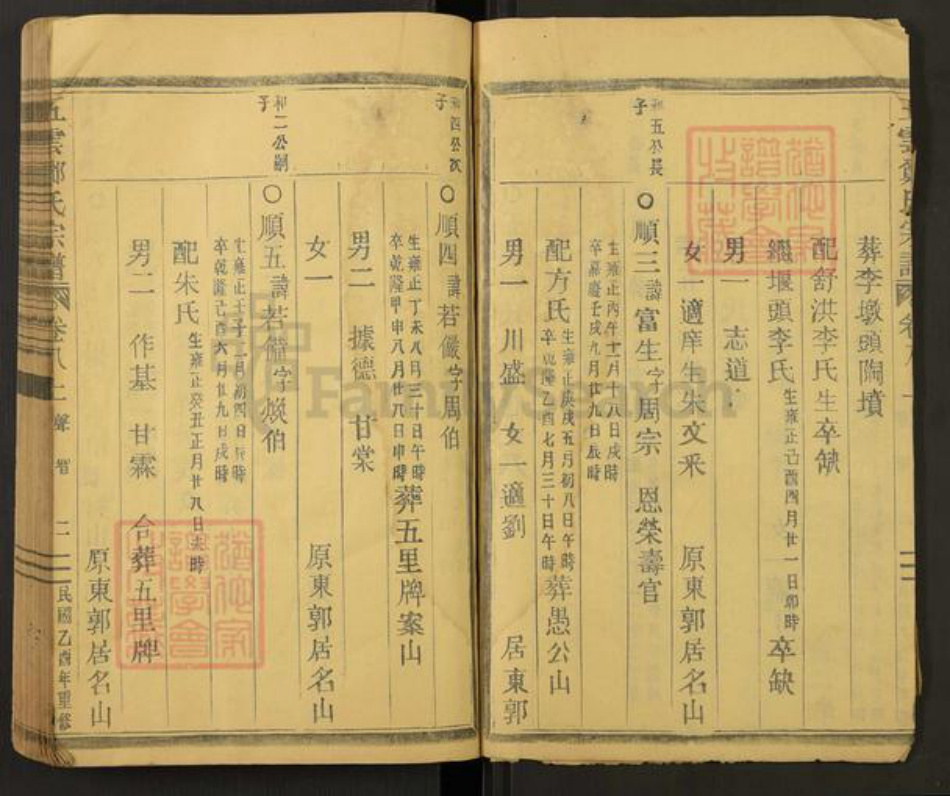 葬李墩頭陶墳
配舒洪李氏生卒缺
繼堰頭李氏生雍正己酉四月廿一日卯時卒缺
男一 志道
女一適庠生朱文釆 原東郭居名山
和五公長子
○順三諱富生字周宗 恩榮壽官
生雍正丙午十二月十八日戌時
卒嘉慶壬戌九月廿九日辰時
配方氏
生雍正庚戌五月初八日午時
卒乾隆乙酉七月三十日午時
葬愚公山
男一 川盛 女一適劉 居東郭
和四公次子
○順四諱若儼字周伯
生雍正丁未八月三十日午時
卒乾隆甲申八月廿八日申時
葬五里牌案山
男二 據德 甘棠
女一 原東郭居名山
和二公嗣子
○順五諱若 字煥伯
生雍正壬子二月初四日辰時
卒乾隆己酉六月廿九日戌時
配朱氏生雍正癸丑正月廿八日未時
男二 作基 甘霖 合葬五里牌
原東郭居名山
五雲鄭氏宗譜 卷八上 聲 智 二 民國乙酉年重修
FamilySearch